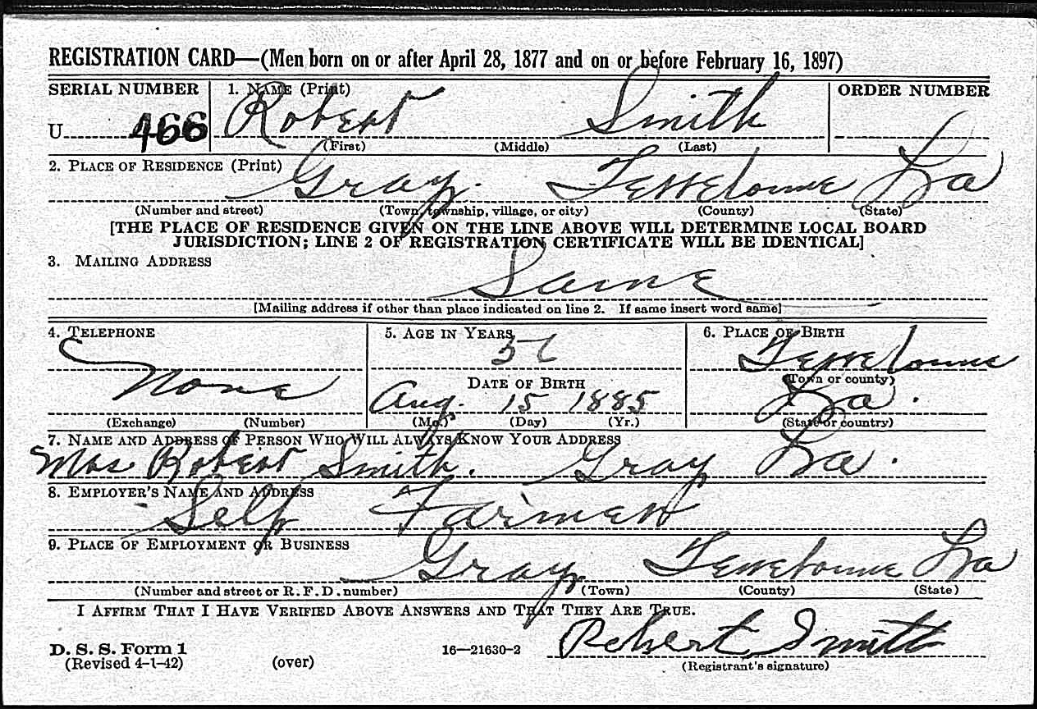 REGISTRATION CARD—(Men born on or after April 28, 1877 and on or before February 16, 1897)
SERIAL NUMBER 1. NAME (Print) ORDER NUMBER
U 466 Robert Smith
(First) (Middle) (Last)
2. PLACE OF RESIDENCE (Print)
Gray. Terrebonne La
(Number and street) (Town, township, village, or city) (County) (State)
[THE PLACE OF RESIDENCE GIVEN ON THE LINE ABOVE WILL DETERMINE LOCAL BOARD
JURISDICTION; LINE 2 OF REGISTRATION CERTIFICATE WILL BE IDENTICAL]
3. MAILING ADDRESS
Same
[Mailing address if other than place indicated on line 2. If same insert word same]
4. TELEPHONE 5. AGE IN YEARS 6. PLACE OF BIRTH
56 Terrebonne
DATE OF BIRTH (Town or county)
None Aug. 15 1885 La.
(Exchange) (Number) (Mo.) (Day) (Yr.) (State or country)
7. NAME AND ADDRESS OF PERSON WHO WILL ALWAYS KNOW YOUR ADDRESS
Mrs Robert Smith. Gray La.
8. EMPLOYER'S NAME AND ADDRESS
Self Farmer
9. PLACE OF EMPLOYMENT OR BUSINESS
Gray Terrebonne La
(Number and street or R. F. D. number) (Town) (County) (State)
I AFFIRM THAT I HAVE VERIFIED ABOVE ANSWERS AND THAT THEY ARE TRUE.
D. S. S. Form 1
(Revised 4-1-42) (over) 16—21630-2 Robert Smith
(Registrant's signature)